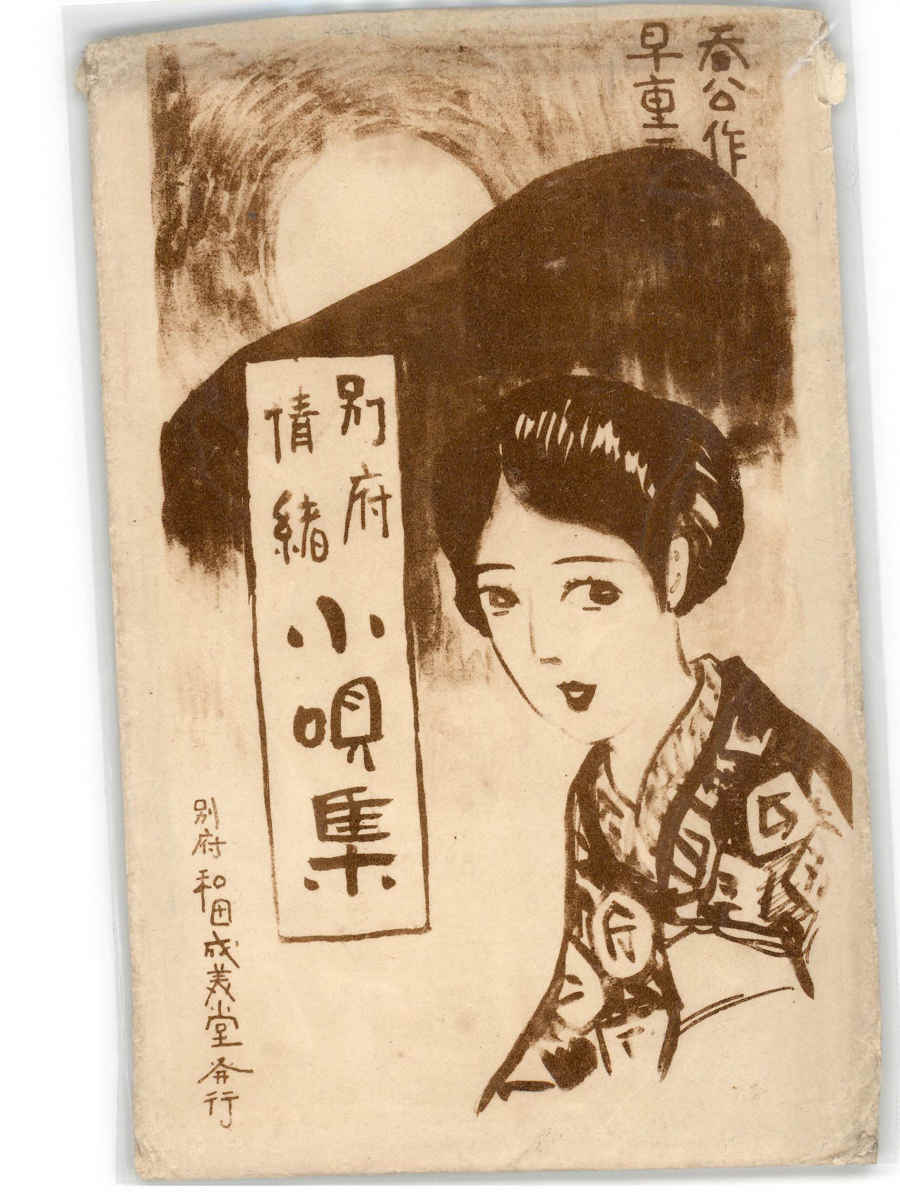 春公作
早重
別府
情緒
小唄集
別府 和田成美堂発行